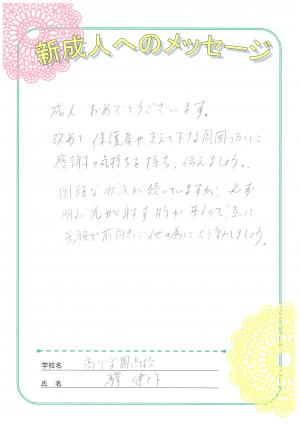 新成人へのメッセージ
成人 おめでとうございます。
改めて 保護者や支えて下さる周囲の方々に
感謝の気持ちを持ち、伝えましょう。
困難な状況が続いていますが、必ず
明るい光が射す時が来るので、互いに
笑顔で前向きに 他の為に 行動しましょう。
学校名 高川学園高校
氏 名